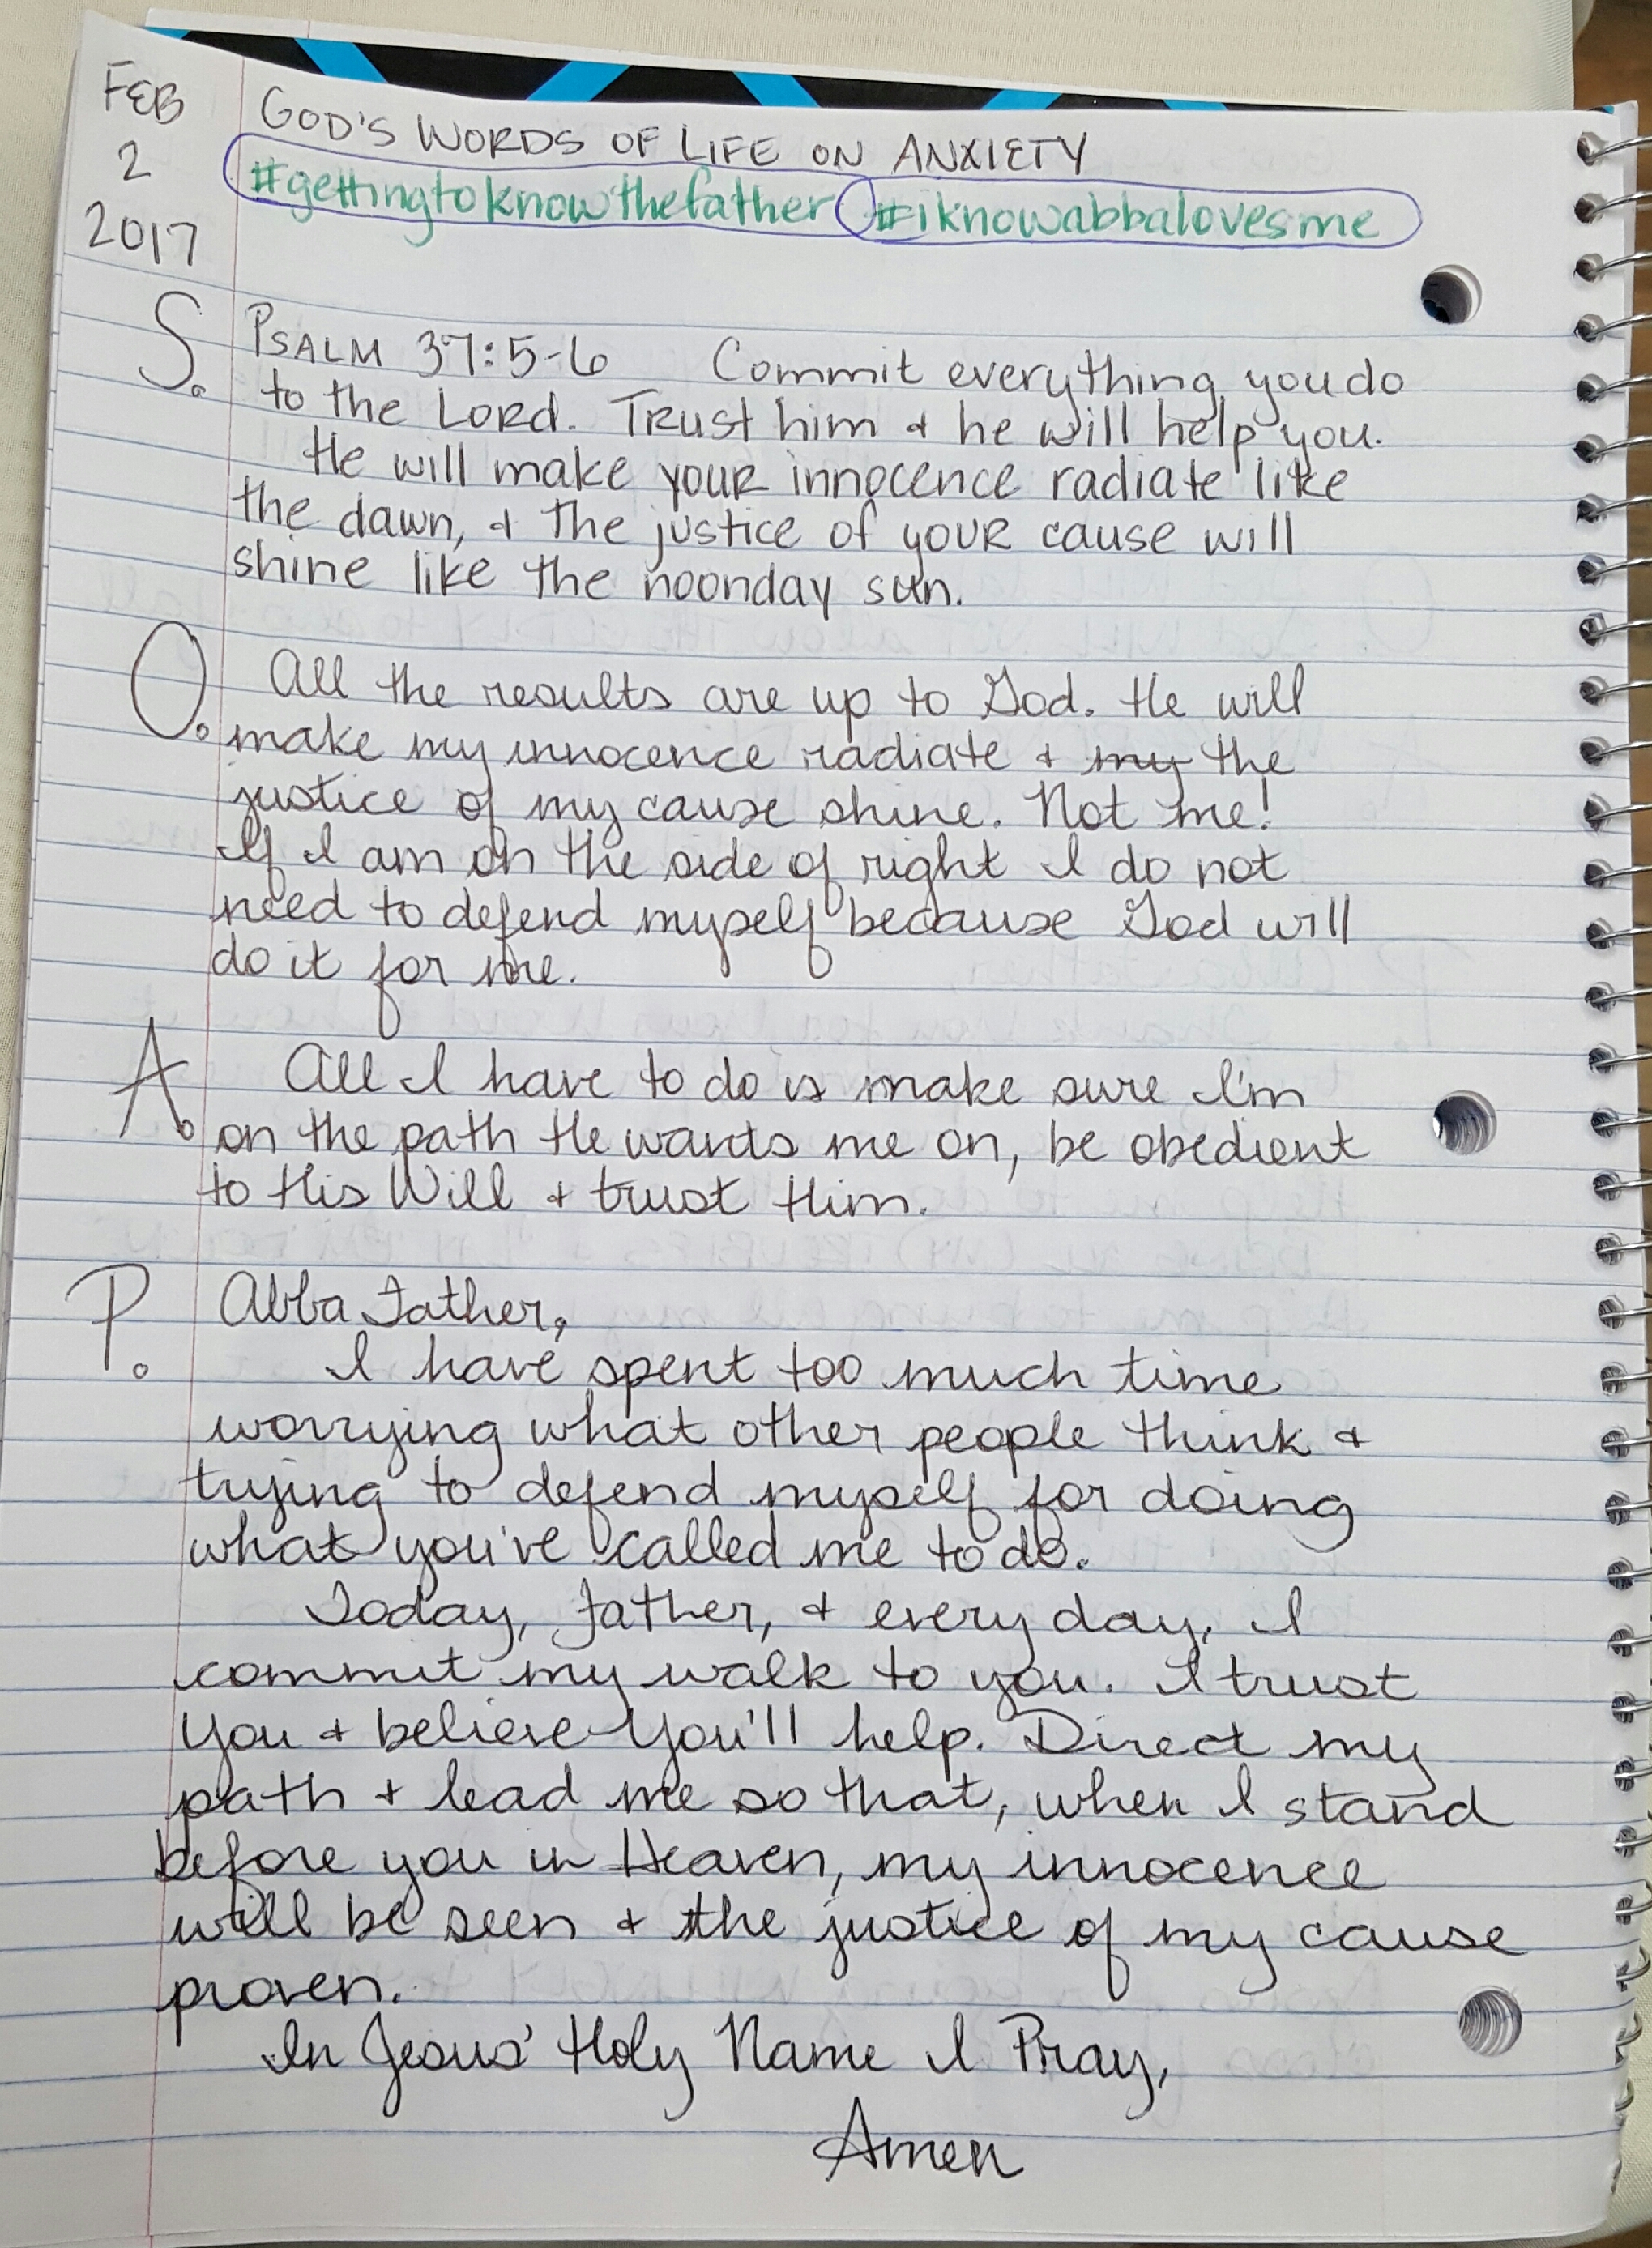 FEB
2
2017
GOD'S WORDS OF LIFE ON ANXIETY
#gettingtoknowthefather #iknowabbalovesme
S. PSALM 37:5-6 Commit everything you do
to the LORD. Trust him & he will help you.
He will make your innocence radiate like
the dawn, & the justice of your cause will
shine like the noonday sun.
O. All the results are up to God. He will
make my innocence radiate & my the
justice of my cause shine. Not me!
If I am on the side of right I do not
need to defend myself because God will
do it for me.
A. All I have to do is make sure I'm
on the path He wants me on, be obedient
to His Will & trust Him.
P. Abba Father,
I have spent too much time
worrying what other people think &
trying to defend myself for doing
what you've called me to do.
Today, Father, & every day, I
commit my walk to you. I trust
You & believe You'll help. Direct my
path & lead me so that, when I stand
before you in Heaven, my innocence
will be seen & the justice of my cause
proven.
In Jesus' Holy Name I Pray,
Amen